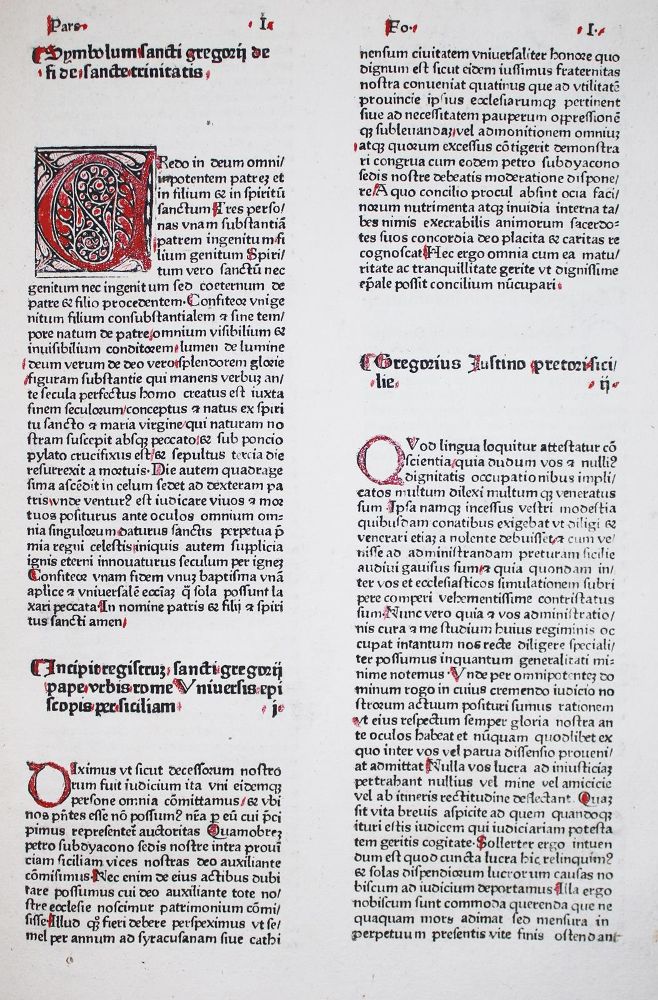 Pars I
Symbolum sancti gregorij de
fi de sancte trinitatis
CRedo in deum omni/
impotentem patrez et
in filium & in spiritū
sanctum Tres perso/
nas vnam substantiā
patrem ingenitum fi
lium genitum Spiri/
tum vero sanctū nec
genitum nec ingenitum sed coeternum de
patre & filio procedentem Confiteor vnige
nitum filium consubstantialem ⁊ sine tem/
pore natum de patre omnium visibilium &
inuisibilium conditorem lumen de lumine
deum verum de deo vero splendorem glorie
figuram substantie qui manens verbuz an/
te secula perfectus homo creatus est iuxta
finem seculorum conceptus ⁊ natus ex spiri
tu sancto ⁊ maria virgine qui naturam no
stram suscepit absqꝫ peccato & sub poncio
pylato crucifixus est & sepultus tercia die
resurrexit a mortuis Die autem quadrage
sima ascēdit in celum sedet ad dexteram pa
tris vnde ventur⁹ est iudicare viuos ⁊ mor
tuos positurus ante oculos omnium om/
nia singulorum daturus sanctis perpetua p̄
mia regni celestis iniquis autem supplicia
ignis eterni innouaturus seculum per ignez
Confiteor vnam fidem vnuz baptisma vnā
aplice ⁊ vniuersalē eccīaz q̄ sola possunt la
xari peccata In nomine patris & filij ⁊ spiri
tus sancti amen
Incipit registruz sancti gregorij
pape vrbis rome Vniuersis epi
scopis per siciliam j
DIximus vt sicut decessorum nostro
rum fuit iudicium ita vni eidemqꝫ
persone omnia cōmittamus & vbi
nos pn̄tes esse nō possum⁹ nr̄a ꝑ eū cui p̄ci
pimus representet auctoritas Quamobrez
petro subdyacono sedis nostre intra proui
ciam siciliam vices nostras deo auxiliante
cōmisimus Nec enim de eius actibus dubi
tare possumus cui deo auxiliante tote no/
stre ecclesie noscimur patrimonium cōmi/
sisse Illud qꝫ fieri debere perspeximus vt se/
mel per annum ad syracusanam siue cathi
Fo I
nensum ciuitatem vniuersaliter honore quo
dignum est sicut eidem iussimus fraternitas
nostra conueniat quatinus que ad vtilitatē
prouincie ipsius ecclesiarumqꝫ pertinent
siue ad necessitatem pauperum oppressionē
qꝫ subleuandaz vel admonitionem omniuz
atqꝫ quorum excessus cōtigerit demonstra
ri congrua cum eodem petro subdyacono
sedis nostre debeatis moderatione dispone/
re A quo concilio procul absint ocia faci/
norum nutrimenta atqꝫ inuidia interna ta/
bes nimis execrabilis animorum sacerdo/
tes suos concordia deo placita & caritas re
cognoscat Hec ergo omnia cum ea matu/
ritate ac tranquillitate gerite vt dignissime
ep̄ale possit concilium nūcupari
Gregorius Iustino pretori sici/
lie ij
QVod lingua loquitur attestatur cō
scientia quia dudum vos ⁊ nulli⁹
dignitatis occupationibus impli/
catos multum dilexi multum qꝫ veneratus
sum Ipsa namqꝫ incessus vestri modestia
quibusdam conatibus exigebat vt diligi &
venerari etiaz a nolente debuisset ⁊ cum ve/
nisse ad administrandam preturam sicilie
audiui gauisus sum ⁊ quia quondam in/
ter vos et ecclesiasticos simulationem subri
pere comperi vehementissime contristatus
sum Nunc vero quia ⁊ vos administratio/
nis cura ⁊ me studium huius regiminis oc
cupat intantum nos recte diligere speciali/
ter possumus inquantum generalitati mi/
nime notemus Vnde per omnipotentez do
minum rogo in cuius cremendo iudicio no
strorum actuum posituri sumus rationem
vt eius respectum semper gloria nostra an
te oculos habeat et nūquam quodlibet ex
quo inter vos vel parua dissensio proueni/
at admittat Nulla vos lucra ad iniusticiaz
pertrahant nullius vel mine vel amicicie
vel ab itineris rectitudine deflectant Quaz
sit vita breuis aspicite ad quem quandoqꝫ
ituri estis iudicem qui iudiciariam potesta
tem geritis cogitate Sollerter ergo intuen
dum est quod cuncta lucra hic relinquim⁹
& solas dispendiorum lucrorum causas no
biscum ad iudicium deportamus Illa ergo
nobiscum sunt commoda querenda que ne
quaquam mors adimat sed mensura in
perpetuum presentis vite finis ostendant